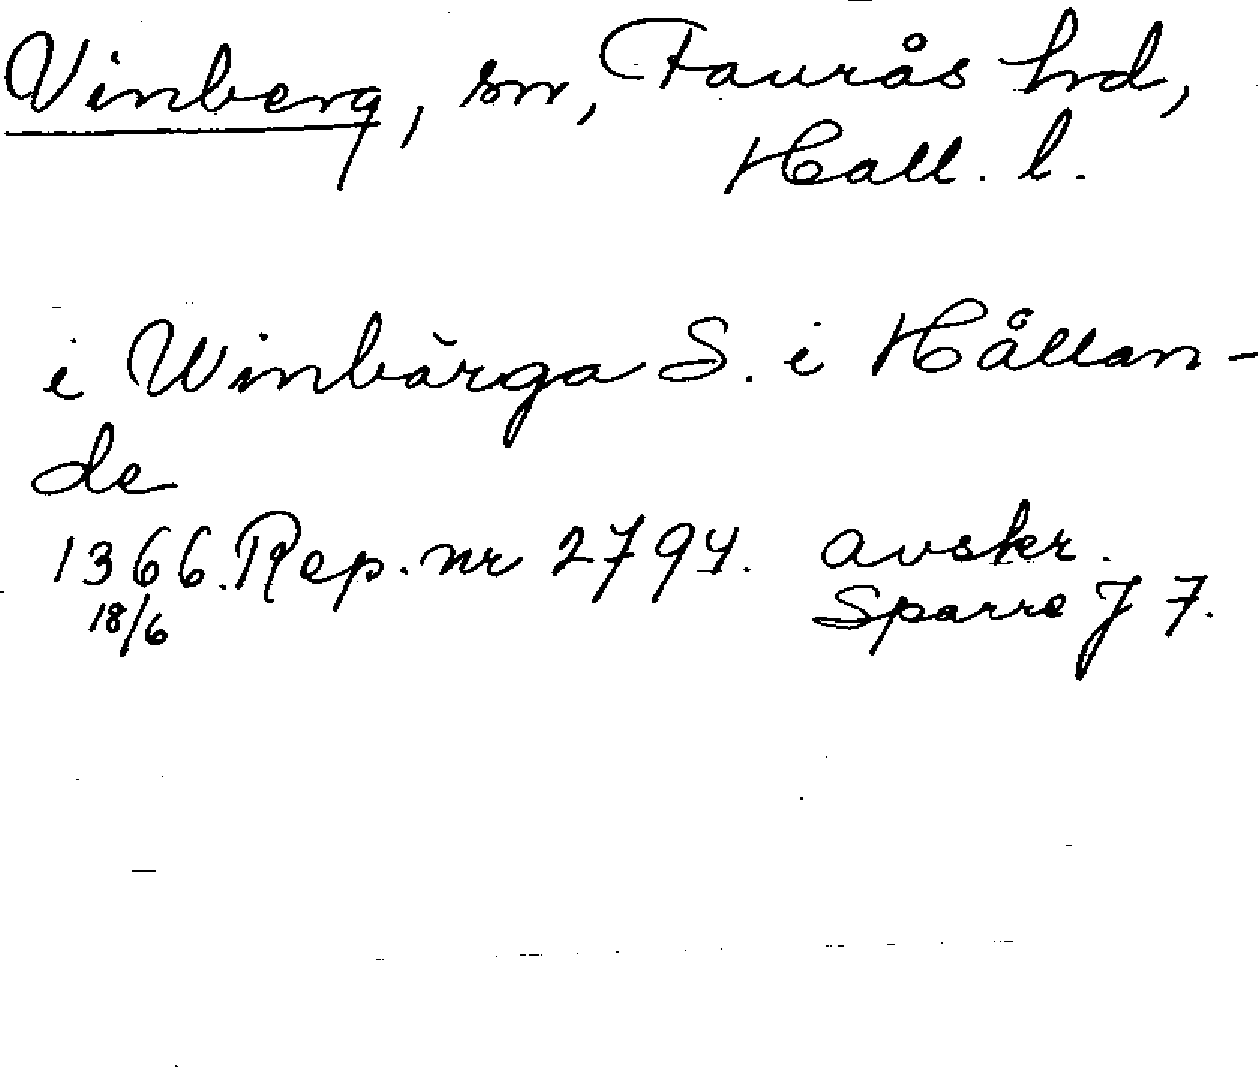 Vinberg, sn, Faurås hrd,
Hall. l.
i Winbärga S. i Hållan-
de
1366. Rep. nr 2794. avskr.
18/6 Sparre J 7.